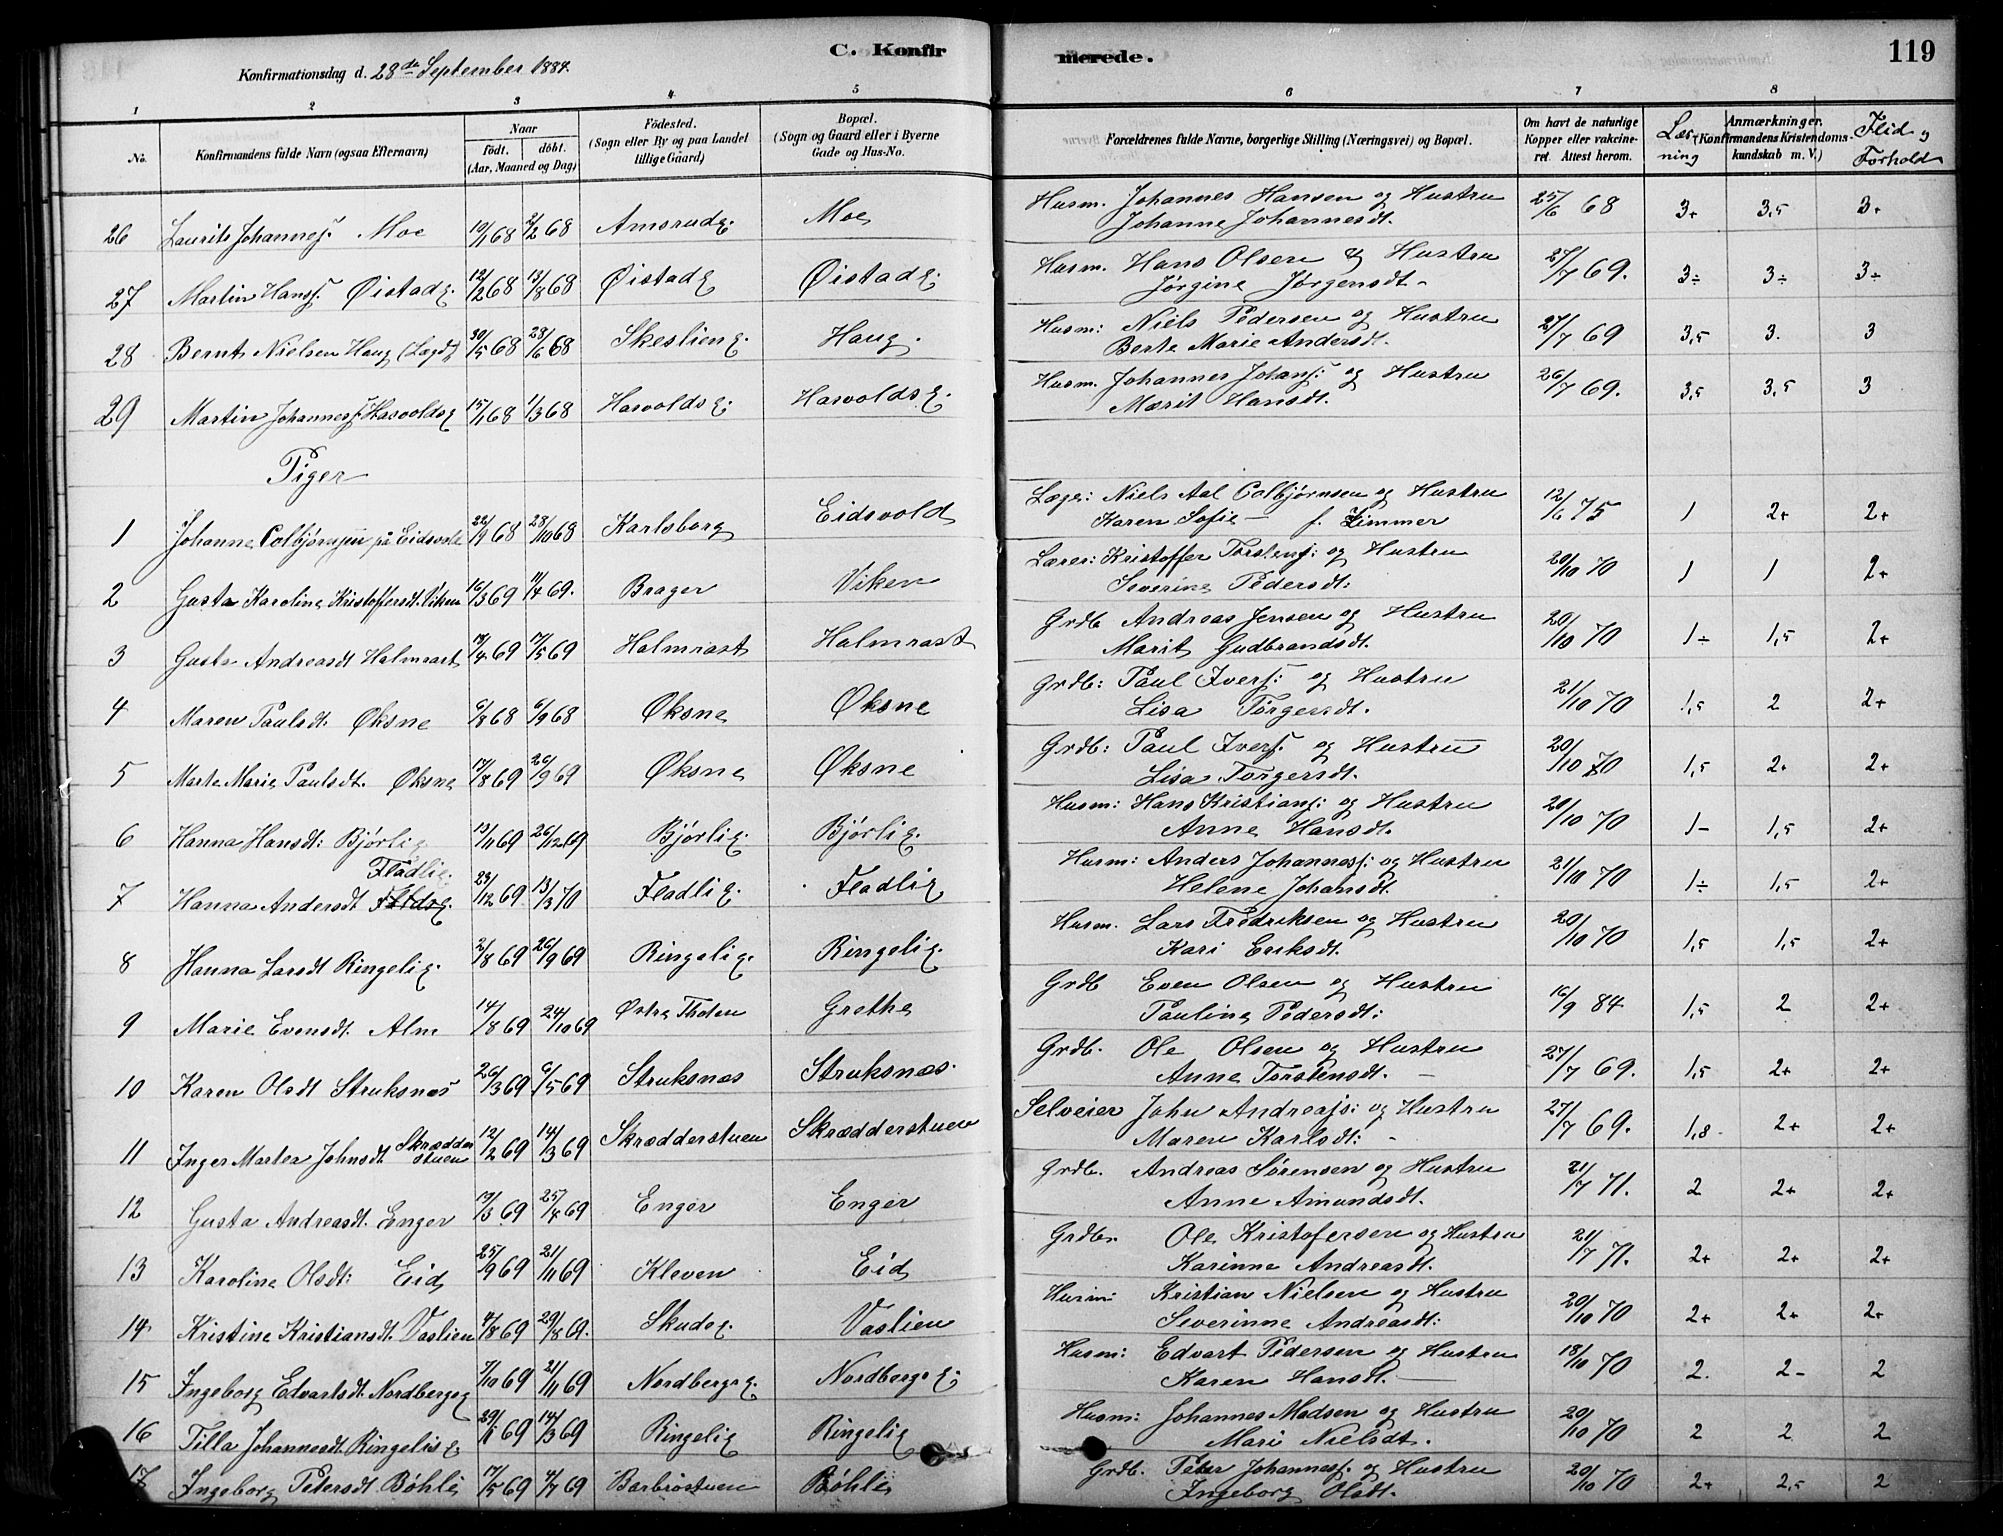 C. Konfirmerede. 119
Konfirmationsdag d. 28de September 1884.
1 2 3 4 5 6 7 8
No. Konfirmandens fulde Navn (ogsaa Efternavn) Naar født. døbt. (Aar, Maaned og Dag) Fødested. (Sogn eller By og paa Landet tillige Gaard) Bopæl. (Sogn og Gaard eller i Byerne Gade og Hus-No. Forældrenes fulde Navne, borgerlige Stilling (Næringsvei) og Bopæl. Om havt de naturlige Kopper eller vakcineret. Attest herom. Læsning Anmærkninger. (Konfirmandens Kristendomskundskab m. V.) Flid og Forhold
26 Laurits Johannes. Moe 10/1 68 2/2 68 Amsrudg. Moe Husm. Johannes Hansen og Hustru Johanne Johannesdt. 25/6 68 3+ 3,5 3+
27 Martin Hans. Øistadg. 12/2 68 13/8 68 Øistadg Øistadg. Husm. Hans Olsen og Hustru Jørgine Jørgensdt. 27/7 69. 3÷ 3÷ 3÷
28 Bernt Nielsen Haug (Lægd) 30/5 68 28/6 68 Skeslieng. Haug. Husm: Niels Pedersen og Hustru Berte Marie Andersdt. 27/7 69 3,5 3. 3
29 Martin Johannes. Hasvoldsg 15/1 68 1/3 68 Hasvoldsg. Hasvoldsg. Husm. Johannes Johans. og Hustru Marit Hansdt. 26/7 69. 3,5 3,5 3
Piger
1 Johanne Colbjørnsen på Eidsvold 22/9 68 28/10 68 Karlsborg Eidsvold Læge: Niels Aal Colbjørnsen og Hustru Karen Sofie f. Zimmer 12/6 75 1 2+ 2+
2 Gusta Karoline Kristoffersdt. Viken 16/3 69 11/4 69. Brager Viken Lærer: Kristoffer Torstens. og Hustru Severine Pedersdt: 20/10 70 1 1 2+
3 Gusta Andreasdt Halmrast 19/4 69 17/5 69 Halmrast Halmrast Grdb Andreas Jensen og Hustru Marit Gudbrandsdt. 20/10 70 1÷ 1,5 2+
4 Maren Paulsdt. Øksne 6/8 68 6/9 68 Øksne Øksne Grdb: Paul Ivers. og Hustru Lisa Torgersdt. 21/10 70 1,5 2 2+
5 Marte Marie Paulsdt. Øksne 17/8 69 26/9 69 Øksne Øksne Grdb: Paul Ivers. og Hustru Lisa Torgersdt. 20/10 70 1,5 2+ 2+
6 Hanna Hansdt: Bjørlig 13/11 69 26/12 69 Bjørlig. Bjørlig. Husm: Hans Kristians. og Hustru Anne Hansdt. 20/10 70 1- 1,5 2+
7 Hanna Andersdt Fladlig. 23/12 69 13/3 70 Fladlig. Fladlig Husm: Anders Johannes. og Hustru Helene Johansdt. 21/10 70 1÷ 1,5 2+
8 Hanna Larsdt Ringelig. 2/8 69 26/9 69 Ringelig. Ringelig. Husm. Lars Fredriksen og Hustru Kari Eriksdt. 20/10 70 1,5 1,5 2+
9 Marie Evensdt. Alm 14/8 69 24/10 69 Østre Thoten Grethe Grdb Even Olsen og Hustru Pauline Pedersdt: 16/9 84 1,5 2 2+
10 Karen Olsdt Struksnæs 26/3 69 6/5 69 Struksnæs Struksnæs. Grdb. Ole Olsen og Hustru Anne Torstensdt. 27/7 69. 1,5 2+ 2+
11 Inger Martea Johnsdt. Skrædderstuen 12/2 69 14/3 69 Skrædderstuen Skrædderstuen Selveier John Andreas. og Hustru Maren Karlsdt: 27/7 69. 1,8 2+ 2+
12 Gusta Andreasdt. Enger 19/3 69 25/4 69 Enger Enger Grdb. Andreas Sørensen og Hustru Anne Amundsdt. 21/7 71. 2 2+ 2+
13 Karoline Olsdt: Eid 25/9 69 21/11 69 Kleven Eid Grdb. Ole Kristofersen og Hustru Karinne Andreasdt. 21/7 71. 2+ 2+ 2+
14 Kristine Kristiansdt. Vaslien 4/8 69 29/8 69. Skudsg. Vaslien Husm: Kristian Nielsen og Hustru Severinne Andreasdt: 20/10 70 2+ 2+ 2+
15 Ingeborg Edvartsdt. Nordbergsg 7/10 69 21/11 69 Nordbergsg. Nordbergsg. Husm: Edvart Pedersen og Hustru Karen Hansdt. 18/10 70 2. 2- 2
16 Tilla Johannesdt. Ringelig. 29/1 69 14/3 69 Ringelig Ringelig Husm: Johannes Madsen og Hustru Mari Nielsdt. 20/10 70 2 2 2
17 Ingeborg Pedersdt Bøhle 17/5 69 4/7 69 Barbrostuen Bøhle Grdb. Peter Johannes. og Hustru Ingeborg Olsdt. 20/10 70 2+ 2,5 2